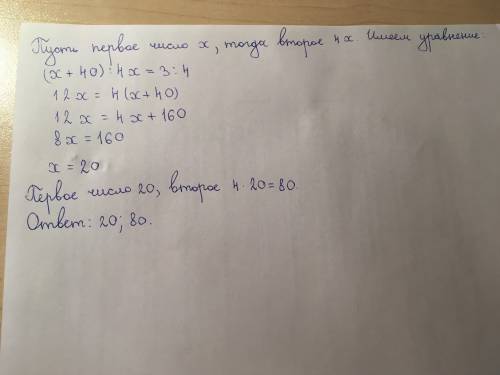 Пусть первое число x, тогда второе 4x. Имеем уравнение:
(x + 40) : 4x = 3 : 4
12x = 4(x+40)
12x = 4x + 160
8x = 160
x = 20
Первое число 20, второе 4·20=80.
Ответ: 20; 80.